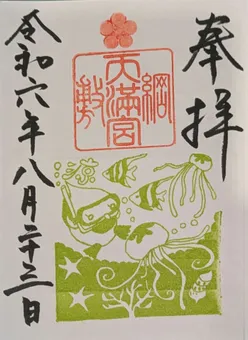 奉拝
綱敷天満宮
涼
令和六年八月二十三日